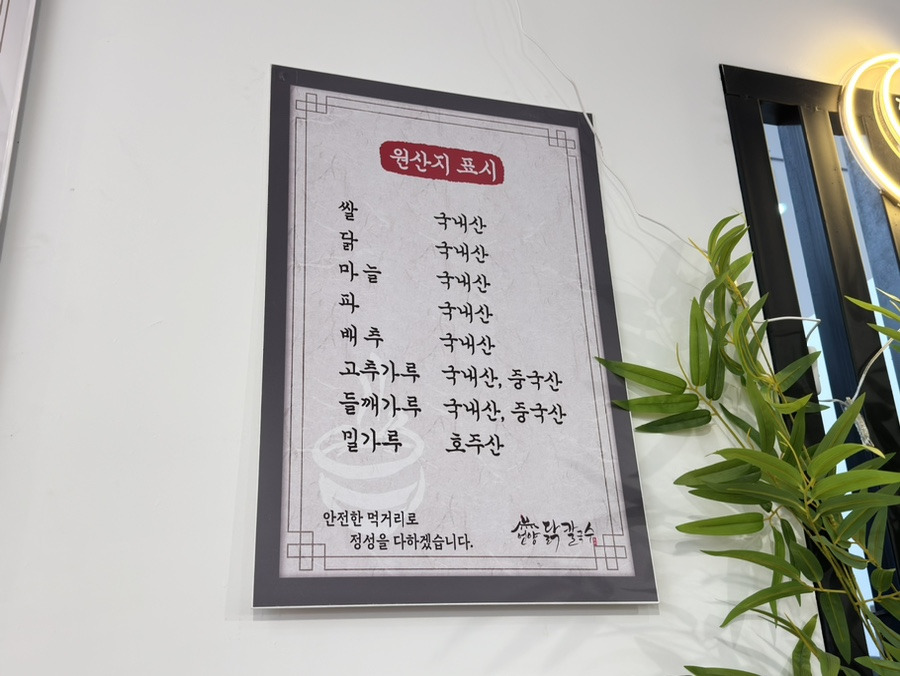 원산지 표시
쌀 국내산
닭 국내산
마늘 국내산
파 국내산
배추 국내산
고추가루 국내산, 중국산
들깨가루 국내산, 중국산
밀가루 호주산
안전한 먹거리로
정성을 다하겠습니다.
언양 닭칼국수